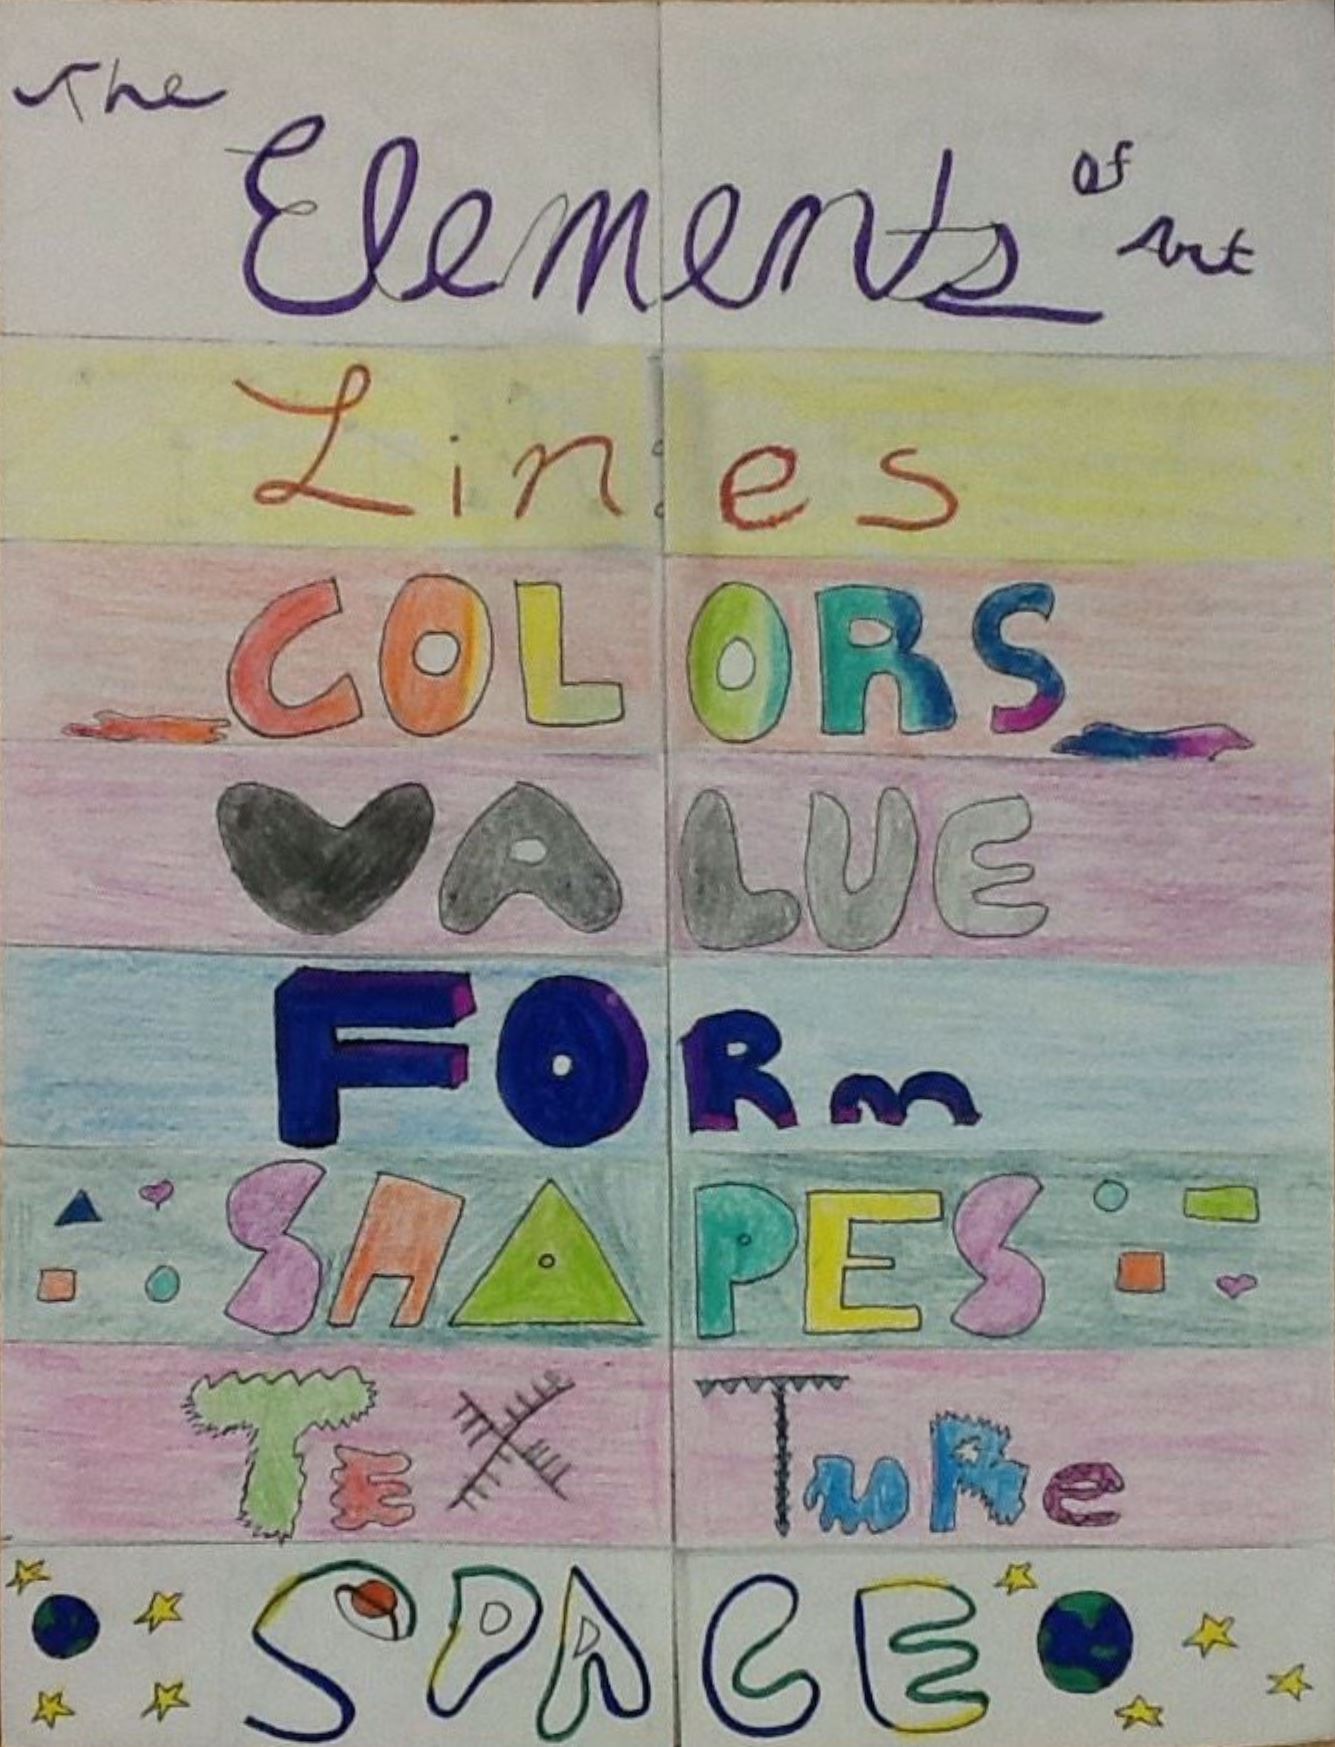 The
Elements
of
Art
Lines
COLORS
VALUE
FORm
SHAPES
TEXTuRe
SPACE